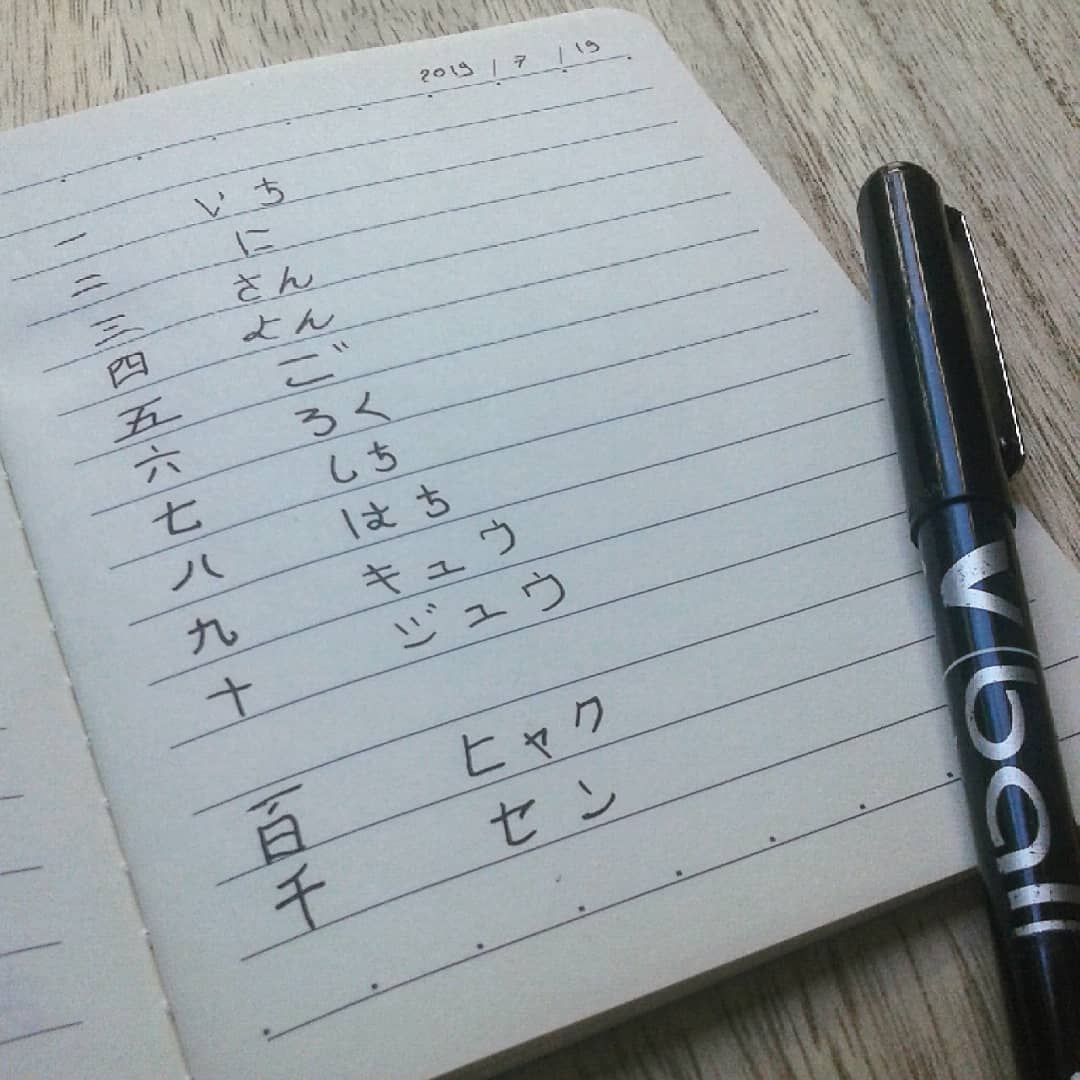 2019 / 7 / 19
一 いち
二 に
三 さん
四 よん
五 ご
六 ろく
七 しち
八 はち
九 キュウ
十 ジュウ
百 ヒャク
千 セン
Vball